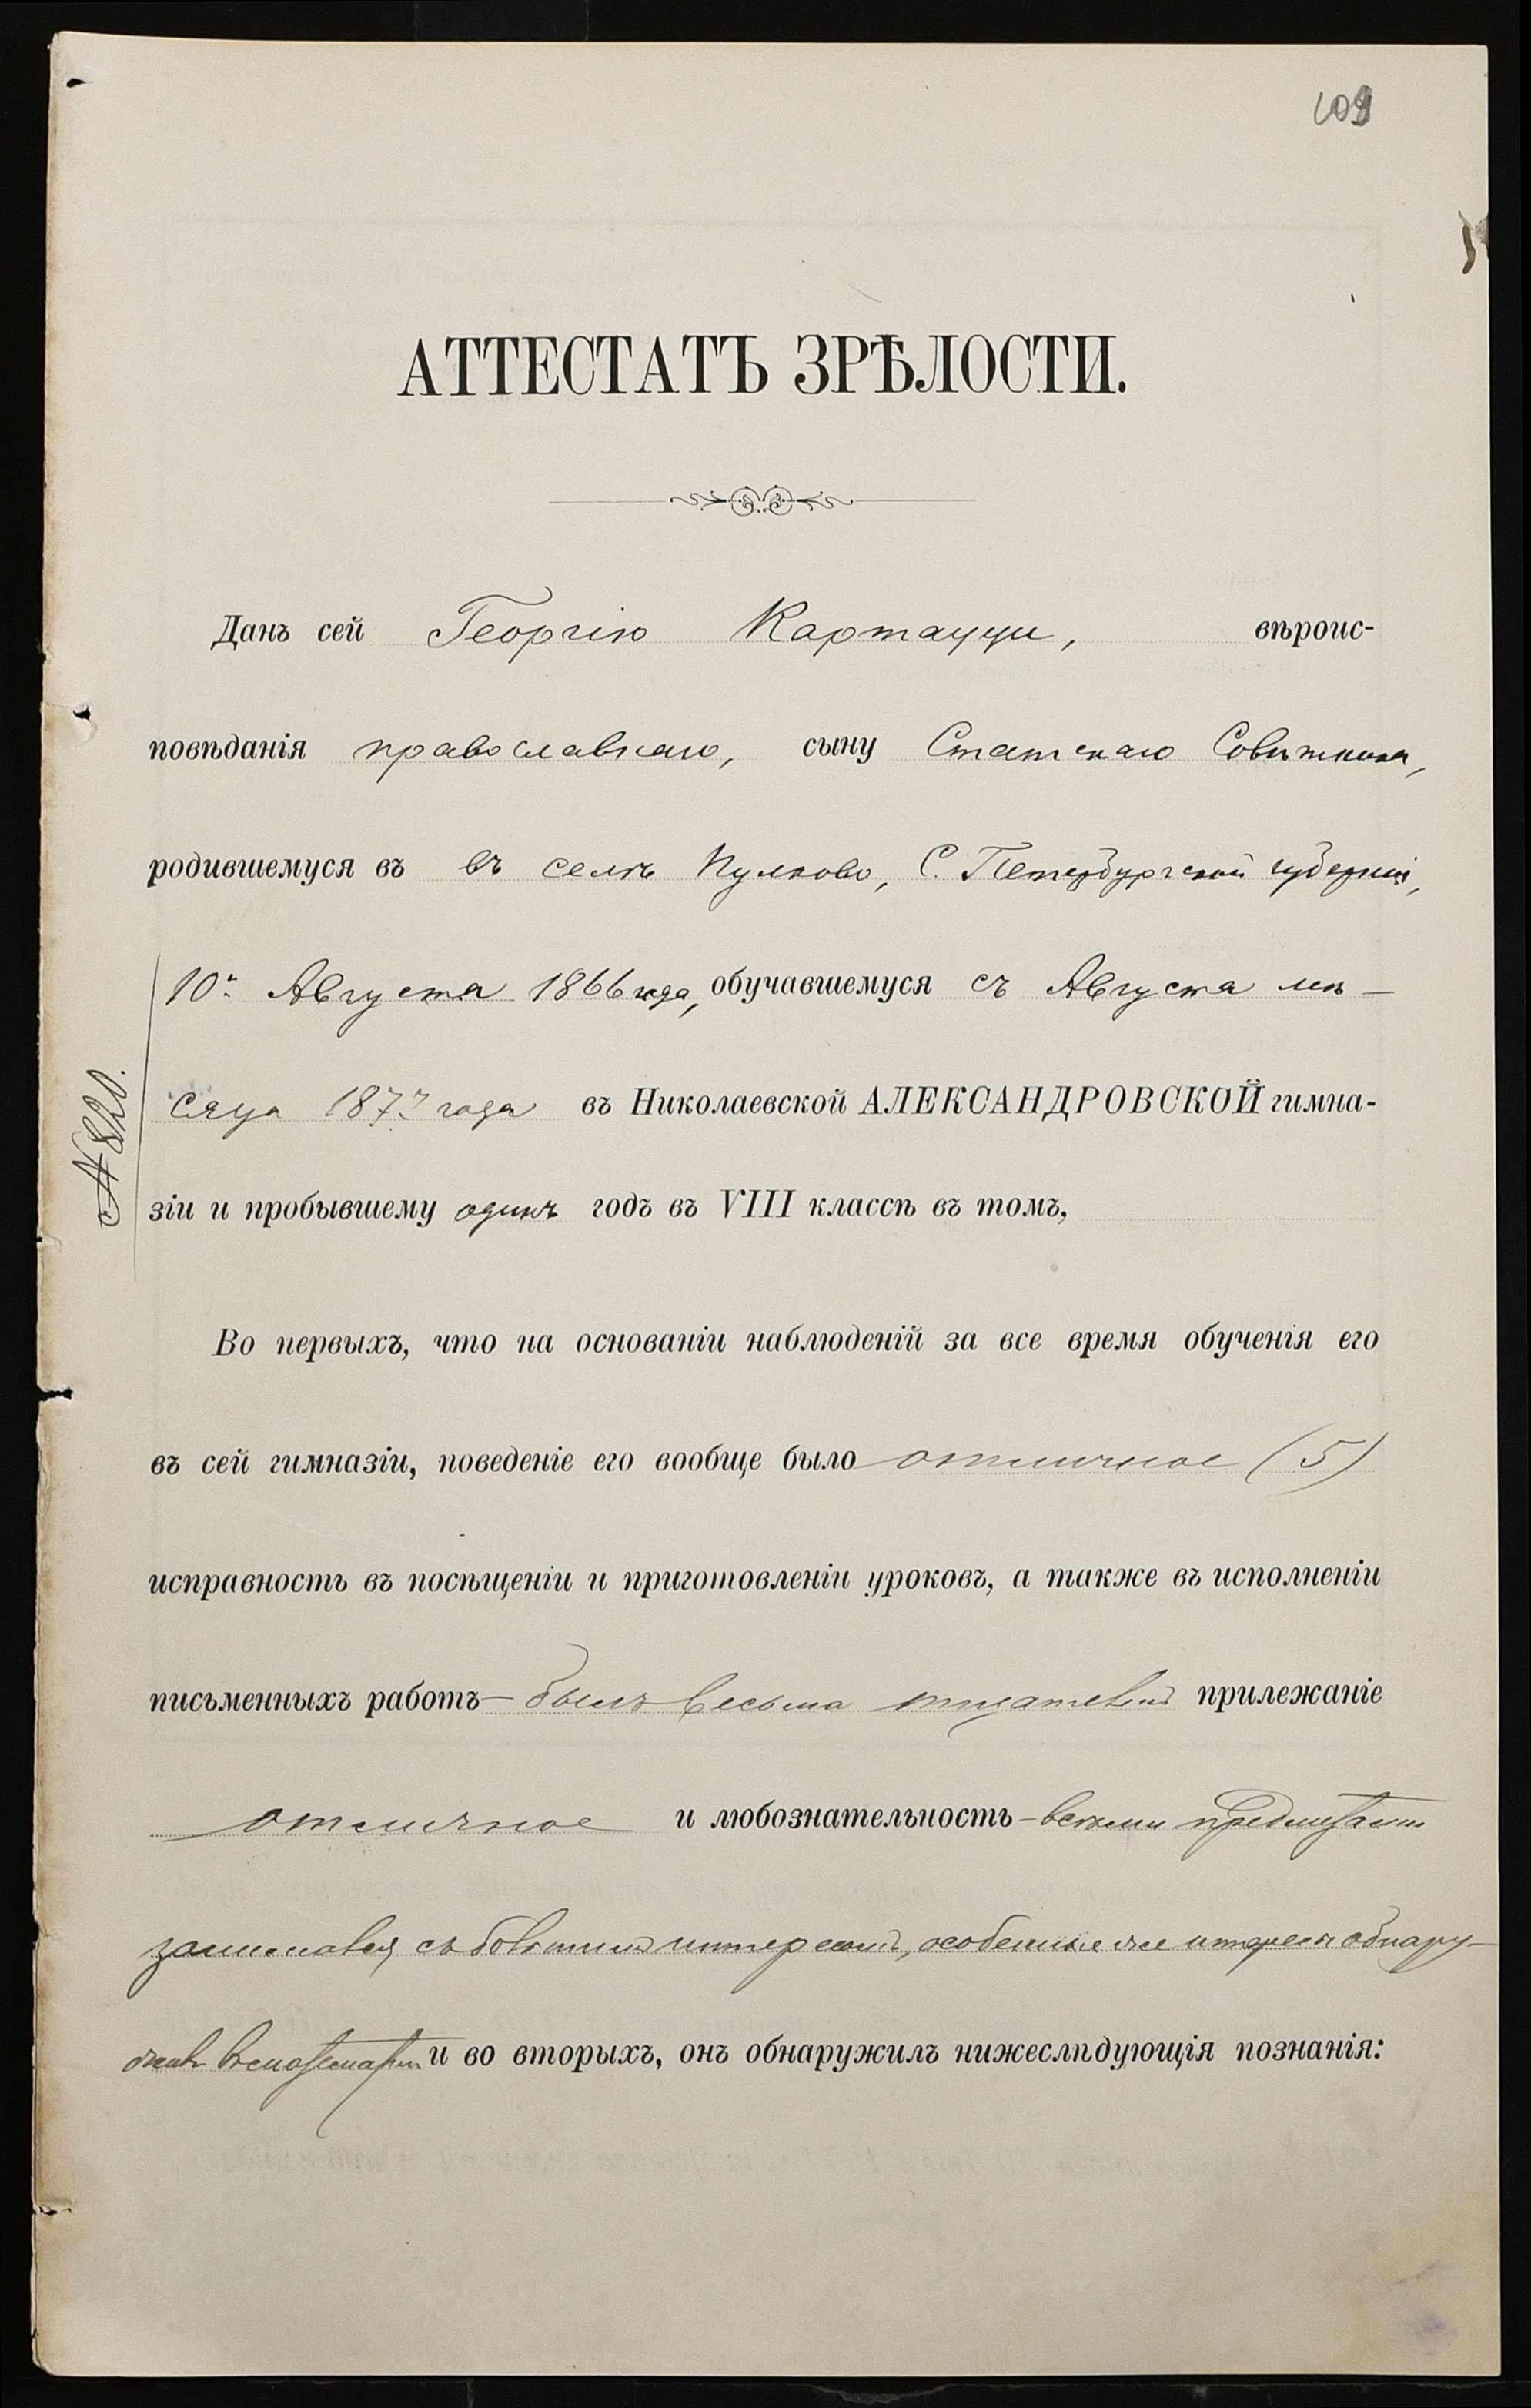 109
АТТЕСТАТЪ ЗРѢЛОСТИ.
Данъ сей Георгію Картацци, вѣроис-
повѣданія православнаго, сыну Статскаго Совѣтника,
родившемуся въ въ селѣ Пулково, С. Петербургской губерніи,
10го Августа 1866 года, обучавшемуся съ Августа мѣ-
сяца 1877 года въ Николаевской АЛЕКСАНДРОВСКОЙ гимна-
зіи и пробывшему одинъ годъ въ VIII классѣ въ томъ,
№ 820.
Во первыхъ, что на основаніи наблюденій за все время обученія его
въ сей гимназіи, поведеніе его вообще было отличное (5)
исправность въ посѣщеніи и приготовленіи уроковъ, а также въ исполненіи
письменныхъ работъ – былъ весьма тщателенъ прилежаніе
отличное и любознательность – всѣми предметами
занимался съ большимъ интересомъ, особенный же интересъ обнару-
жилъ къ математикѣ и во вторыхъ, онъ обнаружилъ нижеслѣдующія познанія: